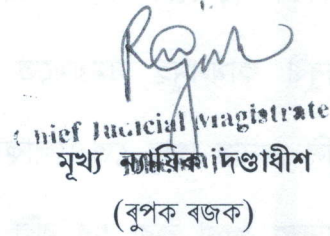 Chief Judicial Magistrate
মূখ্য ন্যায়িক দণ্ডাধীশ
(ৰুপক ৰজক)